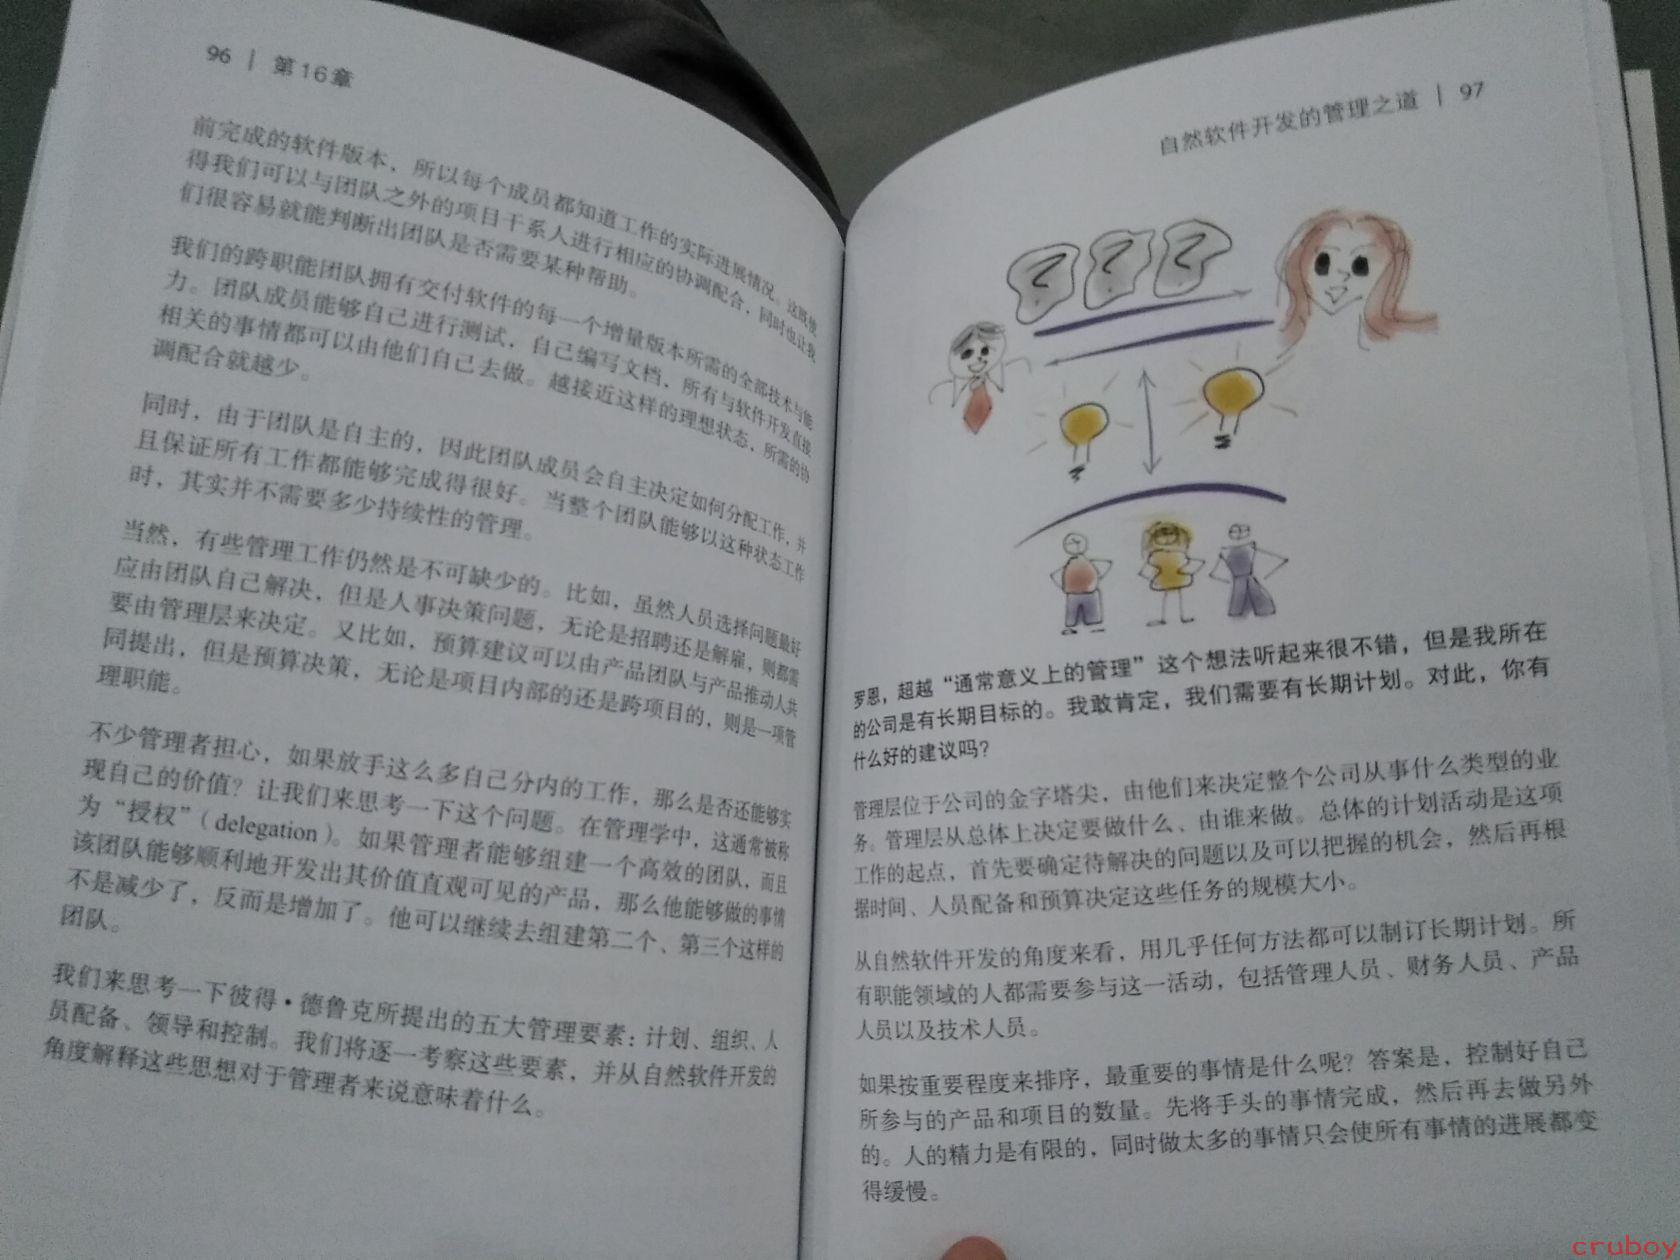 96 | 第16章
前完成的软件版本，所以每个成员都知道工作的实际进展情况。这既使
得我们可以与团队之外的项目干系人进行相应的协调配合，同时也让我
们很容易就能判断出团队是否需要某种帮助。
我们的跨职能团队拥有交付软件的每一个增量版本所需的全部技术与能
力。团队成员能够自己进行测试，自己编写文档，所有与软件开发直接
相关的事情都可以由他们自己去做。越接近这样的理想状态，所需的协
调配合就越少。
同时，由于团队是自主的，因此团队成员会自主决定如何分配工作，并
且保证所有工作都能够完成得很好。当整个团队能够以这种状态工作
时，其实并不需要多少持续性的管理。
当然，有些管理工作仍然是不可缺少的。比如，虽然人员选择问题最好
应由团队自己解决，但是人事决策问题，无论是招聘还是解雇，则都需
要由管理层来决定。又比如，预算建议可以由产品团队与产品推动人共
同提出，但是预算决策，无论是项目内部的还是跨项目的，则是一项管
理职能。
不少管理者担心，如果放手这么多自己分内的工作，那么是否还能够实
现自己的价值？让我们来思考一下这个问题。在管理学中，这通常被称
为“授权”（delegation）。如果管理者能够组建一个高效的团队，而且
该团队能够顺利地开发出其价值直观可见的产品，那么他能够做的事情
不是减少了，反而是增加了。他可以继续去组建第二个、第三个这样的
团队。
我们来思考一下彼得·德鲁克所提出的五大管理要素：计划、组织、人
员配备、领导和控制。我们将逐一考察这些要素，并从自然软件开发的
角度解释这些思想对于管理者来说意味着什么。
自然软件开发的管理之道 | 97
? ? ?
罗恩，超越“通常意义上的管理”这个想法听起来很不错，但是我所在
的公司是有长期目标的。我敢肯定，我们需要有长期计划。对此，你有
什么好的建议吗？
管理层位于公司的金字塔尖，由他们来决定整个公司从事什么类型的业
务。管理层从总体上决定要做什么、由谁来做。总体的计划活动是这项
工作的起点，首先要确定待解决的问题以及可以把握的机会，然后再根
据时间、人员配备和预算决定这些任务的规模大小。
从自然软件开发的角度来看，用几乎任何方法都可以制订长期计划。所
有职能领域的人都需要参与这一活动，包括管理人员、财务人员、产品
人员以及技术人员。
如果按重要程度来排序，最重要的事情是什么呢？答案是，控制好自己
所参与的产品和项目的数量。先将手头的事情完成，然后再去做另外
的。人的精力是有限的，同时做太多的事情只会使所有事情的进展都变
得缓慢。
cruboy